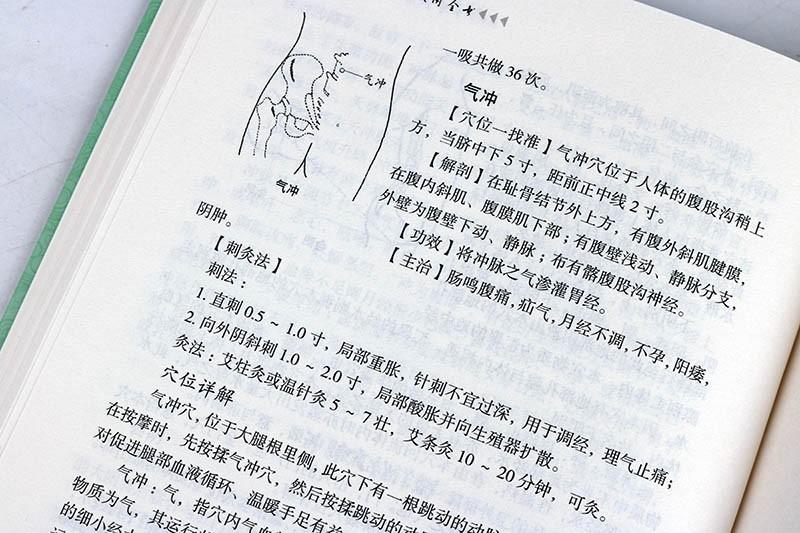 全书
一吸共做36次。
气冲
气冲
气冲
【穴位一找准】气冲穴位于人体的腹股沟稍上
方，当脐中下5寸，距前正中线2寸。
【解剖】在耻骨结节外上方，有腹外斜肌腱膜，
在腹内斜肌、腹膜肌下部；有腹壁浅动、静脉分支，
外壁为腹壁下动、静脉；布有髂腹股沟神经。
【功效】将冲脉之气渗灌胃经。
【主治】肠鸣腹痛，疝气，月经不调，不孕，阳痿，
阴肿。
【刺灸法】
刺法：
1. 直刺0.5～1.0寸，局部重胀，针刺不宜过深，用于调经，理气止痛；
2. 向外阴斜刺1.0～2.0寸，局部酸胀并向生殖器扩散。
灸法：艾炷灸或温针灸5～7壮，艾条灸10～20分钟，可灸。
穴位详解
气冲穴，位于大腿根里侧，此穴下有一根跳动的动脉
在按摩时，先按揉气冲穴，然后按揉跳动的动
对促进腿部血液循环、温暖手足有益
气冲：气，指穴内气血
物质为气，其运行
的细小经